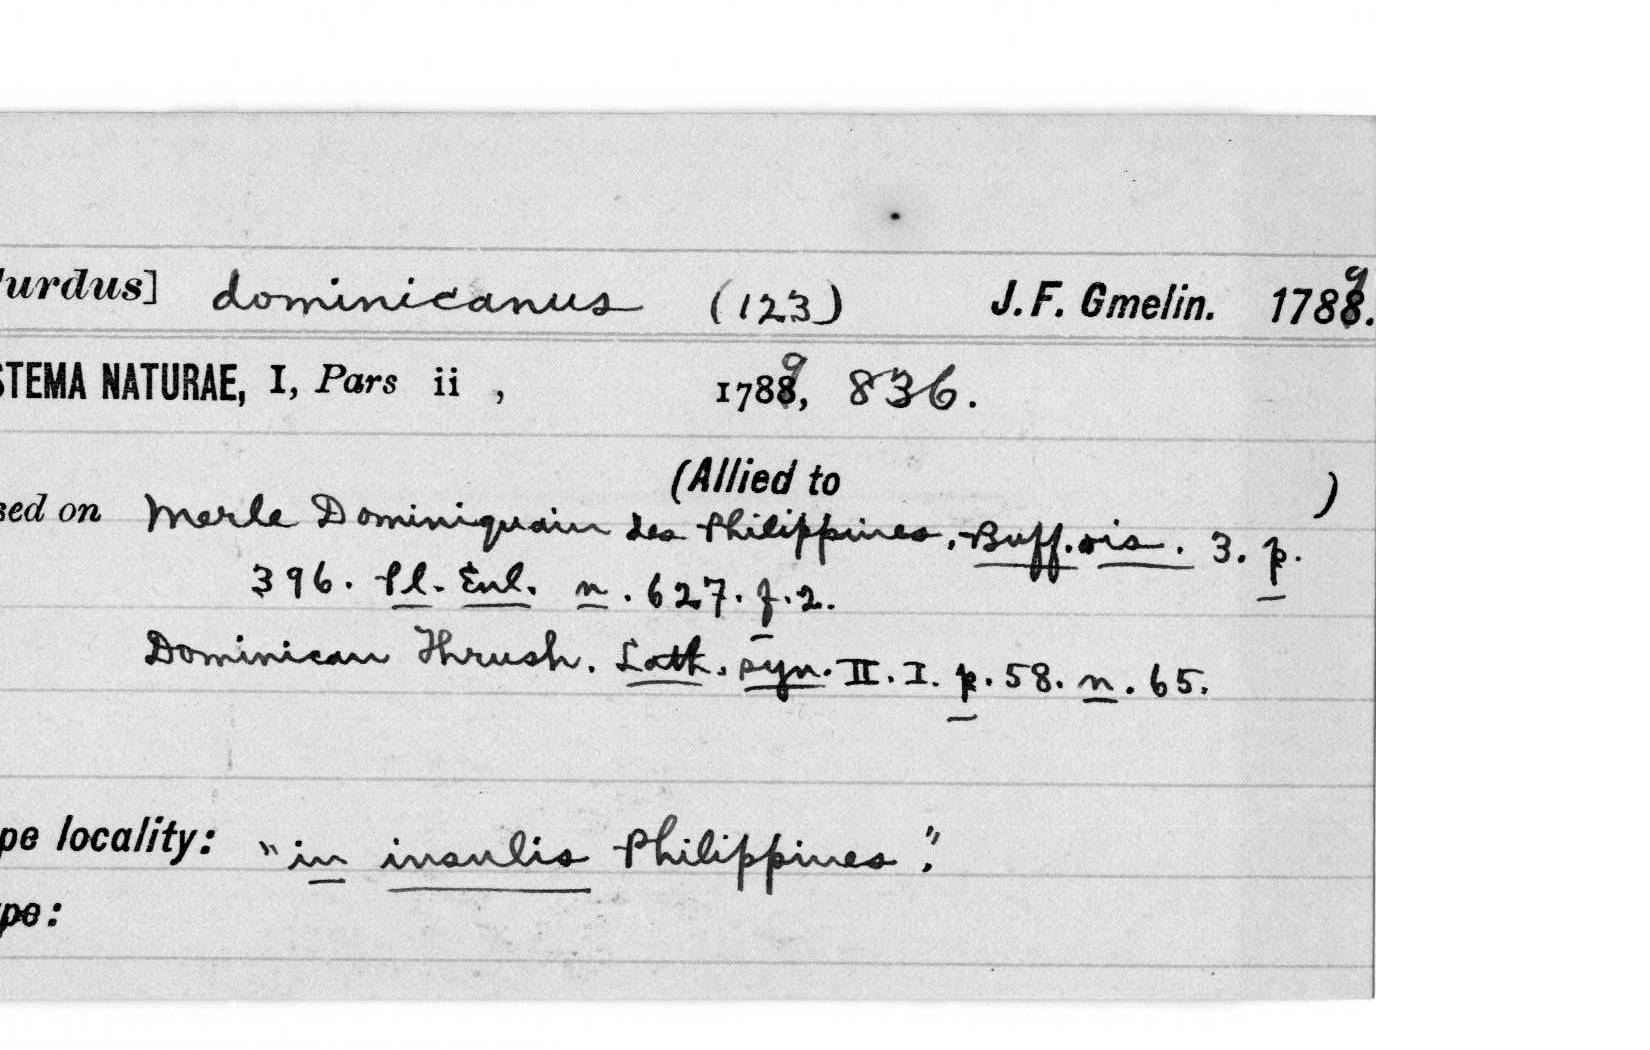 urdus] dominicanus (123) J.F. Gmelin. 1789.
STEMA NATURAE, I, Pars ii , 1789, 836.
(Allied to )
sed on Merle Dominiquain des Philippines. Buff. ois. 3. p.
396. Pl. Enl. n. 627. f. 2.
Dominican Thrush. Lath. syn. II. I. p. 58. n. 65.
pe locality: "in insulis Philippines".
pe: